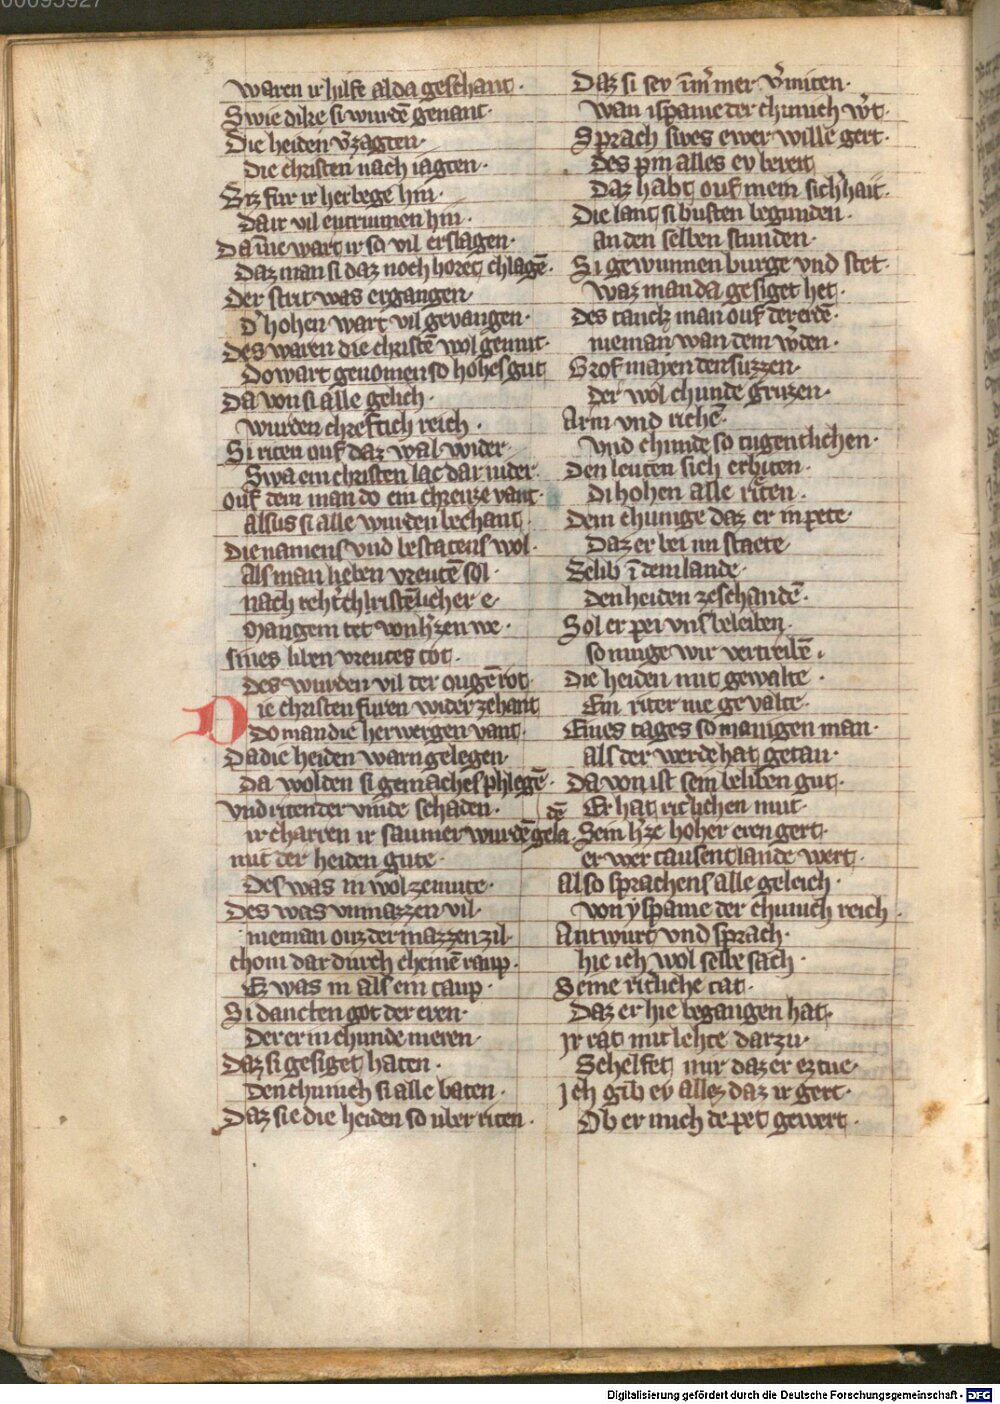 00095927
waren ir hilfe alda geschant·
Swie dike si wurdē genant·
Die heiden v̓zagten·
die christen nach iagten·
Biz fur ir herbege hin·
Da ir vil entrunnen hin·
Da nie wart ir so vil erslagen·
Daz man si daz noch horet chlagē·
der strit was ergangen·
d̓ hohen wart vil gevangen·
des waren die christē wol gemut·
Do wart genomen so hohes gut
Da von si alle gelich·
wurden chreftich reich·
Si riten ouf daz wal wider·
Swa ein christen lac dar nider·
ouf dem man do ein chreuze vant·
alsus si alle wurden bechant·
die namens vnd bestatens wol·
als man lieben vreutē sol·
nach reht̓ christēlicher e·
Mangem tet von h̓zen we·
sines liben vreutes tot·
des wurden vil der ougē rot·
Die christen furen wider zehant
do man die herwergen vant·
Da die heiden warn gelegen·
da wolden si gemaches phlegē·
vnd riten der vinde schaden·
dē
ir charren ir saumer wurdē gela
mit der heiden gute·
des was in wol ze mute·
des was vnmazzen vil·
nieman ouz der mazzen zil·
chom dar durch cheinē raup·
Ez was in als ein taup·
Si dancten got der eren·
Der er in chunde meren·
Daz si gesiget haten·
den chunich si alle baten·
Daz sie die heiden so uber riten·
Daz si sey im̄ mer v̓miten·
wan yspanie der chunich w̓t·
Sprach swes ewer wille gert·
des pin alles ev bereit
Daz habt ouf mein sich̓hait·
Die lant si busten begunden·
an den selben stunden·
Si gewunnen burge vnd stet·
waz man da gesiget het·
des tanckt man ouf der erdē·
nieman wan dem w̓den·
Grof mayen den suzzen·
der wol chunde gruzen·
Arm vnd richē·
vnd chunde so tugentlichen·
Den leuten sich erbiten·
Di hohen alle riten·
Dem chunige daz er in pete·
Daz er bei im staete
Belib ī dem lande·
den heiden ze schandē·
Sol er pei vns beleiben·
so muge wir vertreibē·
die heiden mit gewalte·
Ein riter nie gevalte·
Eines tages so manigen man·
als der werde hat getan·
da von ist sein beliben gut·
Er hat richehen mut·
Sein h̓ze hoher eren gert·
er wer tausent lande wert·
Also sprachens alle geleich·
von yspanie der chunich reich·
Antwurt vnd sprach·
hie ich wol selbe sach·
Seine ritliche tat·
Daz er hie begangen hat·
Jr rat mit lehte darzu·
Behelfet mir daz er ez tue·
Jch gib ev allez daz ir gert·
Ob er mich de pet gewert·
Digitalisierung gefördert durch die Deutsche Forschungsgemeinschaft - DFG